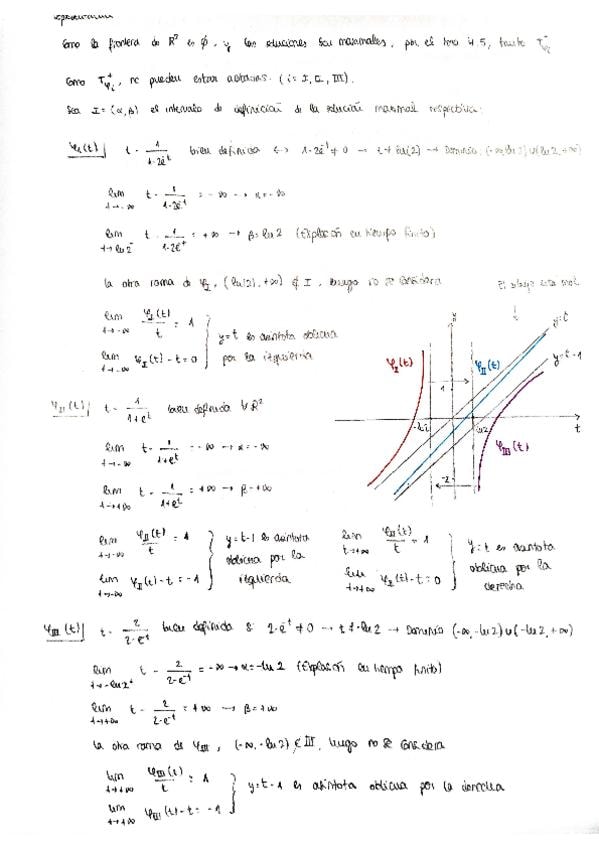 Como la frontera de R² es ∅, y las soluciones son maximales, por el tma 4.5, tanto T⁻φᵢ
como T⁺φᵢ, no pueden estar acotadas. (i = I, II, III).
Sea I = (α, β) el intervalo de definición de la solución maximal respectiva.
φ_I(t) t - 1/(1-2e^t) bien definida ↔ 1-2e^t ≠ 0 → t ≠ ln(2) → Dominio: (-∞, ln 2) ∪ (ln 2, +∞)
lim t→-∞ t - 1/(1-2e^t) = -∞ → α = -∞
lim t→ln2⁻ t - 1/(1-2e^t) = +∞ → β = ln 2 (Explosión en tiempo finito)
la otra rama de φ_I, (ln(2), +∞) ∉ I, luego no se considera
El dibujo está mal
lim t→-∞ φ_I(t)/t = 1
lim t→-∞ φ_I(t) - t = 0
y = t es asíntota oblicua
por la izquierda
x
y=t
y=t-1
φ_I(t)
φ_II(t)
φ_III(t)
1
-ln2
ln2
-2
t
φ_II(t) t - 1/(1+e^t) bien definida ∀ R²
lim t→-∞ t - 1/(1+e^t) = -∞ → α = -∞
lim t→+∞ t - 1/(1+e^t) = +∞ → β = +∞
lim t→-∞ φ_II(t)/t = 1
lim t→-∞ φ_II(t) - t = -1
y = t-1 es asíntota
oblicua por la
izquierda
lim t→+∞ φ_II(t)/t = 1
lim t→+∞ φ_II(t) - t = 0
y = t es asíntota
oblicua por la
derecha
φ_III(t) t - 2/(2-e^-t) bien definida si 2-e^-t ≠ 0 → t ≠ -ln 2 → Dominio (-∞, -ln 2) ∪ (-ln 2, +∞)
lim t→-ln2⁺ t - 2/(2-e^-t) = -∞ → α = -ln 2 (Explosión en tiempo finito)
lim t→+∞ t - 2/(2-e^-t) = +∞ → β = +∞
la otra rama de φ_III, (-∞, -ln 2) ∉ III, luego no se considera
lim t→+∞ φ_III(t)/t = 1
lim t→+∞ φ_III(t) - t = -1
y = t-1 es asíntota oblicua por la derecha